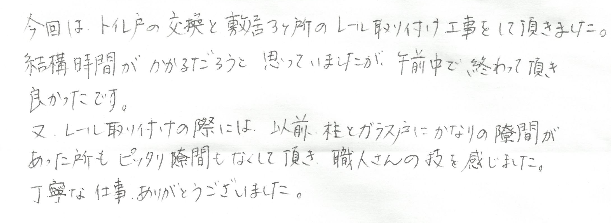 今回は、トイレ戸の交換と敷居3ヶ所のレール取り付け工事をして頂きました。
結構時間がかかるだろうと思っていましたが、午前中で終わって頂き
良かったです。
又、レール取り付けの際には、以前、柱とガラス戸にかなりの隙間が
あった所もピッタリ隙間もなくして頂き、職人さんの技を感じました。
丁寧な仕事、ありがとうございました。